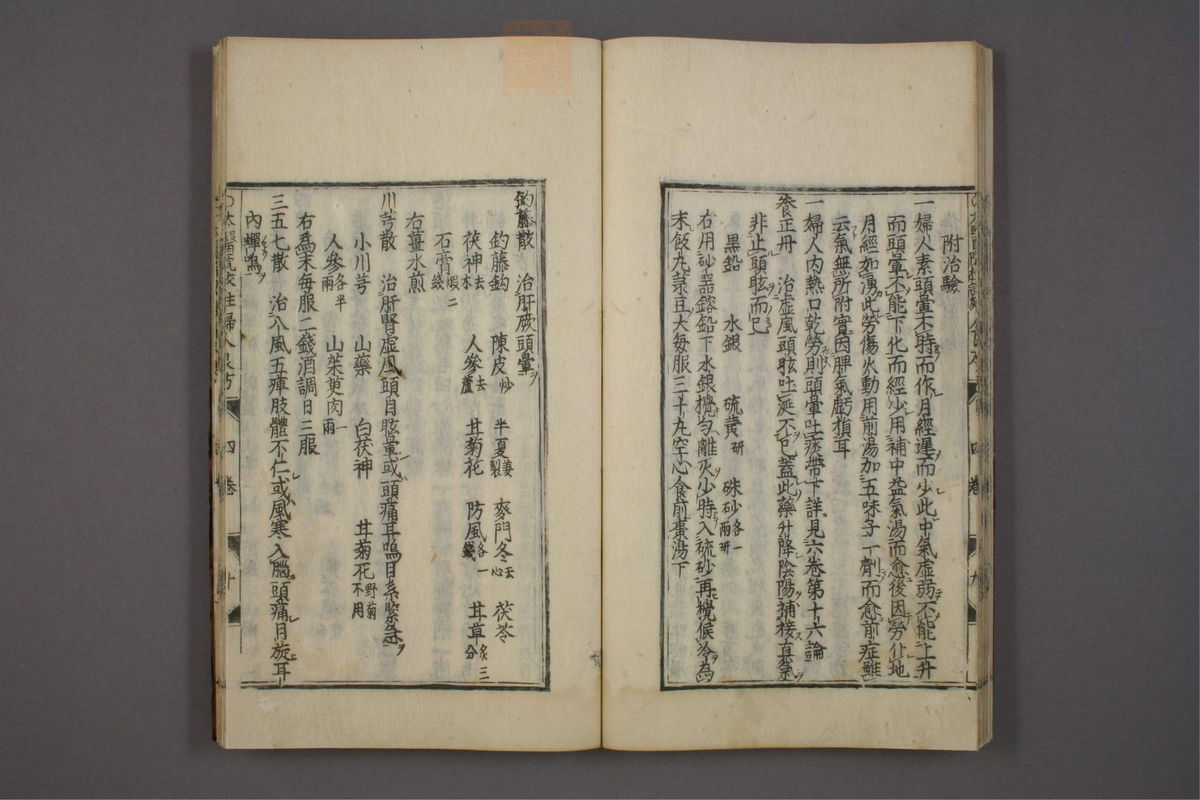 附治驗
一婦人素頭暈不時而作月經遲而少此中氣虛弱不能上升
而頭暈不能下化而經少用補中益氣湯而愈後因勞仆地
月經如湧此勞傷火動用前湯加五味子一劑而愈前症雖
云氣無所附實因脾氣虧損耳
一婦人内熱口乾勞則頭暈吐痰帶下詳見六卷第十六論
養正丹　治虛風頭眩吐涎不已蓋此藥升降陰陽補接真氣
非止頭眩而已
黑鉛　水銀　硫黄研　硃砂各一兩研
右用砂器鎔鉛下水銀攪勻離火少時入硫砂再攪候冷為
末飯丸菉豆大每服三十丸空心食前棗湯下
四卷　九
釣藤散　治肝厥頭暈
釣藤鈎　陳皮炒　半夏姜製　麥門冬去心　茯苓
茯神去木　人參去蘆　甘菊花　防風各一錢　甘草炙三分
石膏煆二錢
右薑水煎
川芎散　治肝腎虛風頭目眩暈或頭痛耳鳴目系緊急
小川芎　山藥　白茯神　甘菊花野菊不用
人參各半兩　山茱萸肉一兩
右為末每服二錢酒調日三服
三五七散　治八風五痺肢體不仁或風寒入腦頭痛目旋耳
内蟬鳴
太醫院校註婦人良方　四卷　十